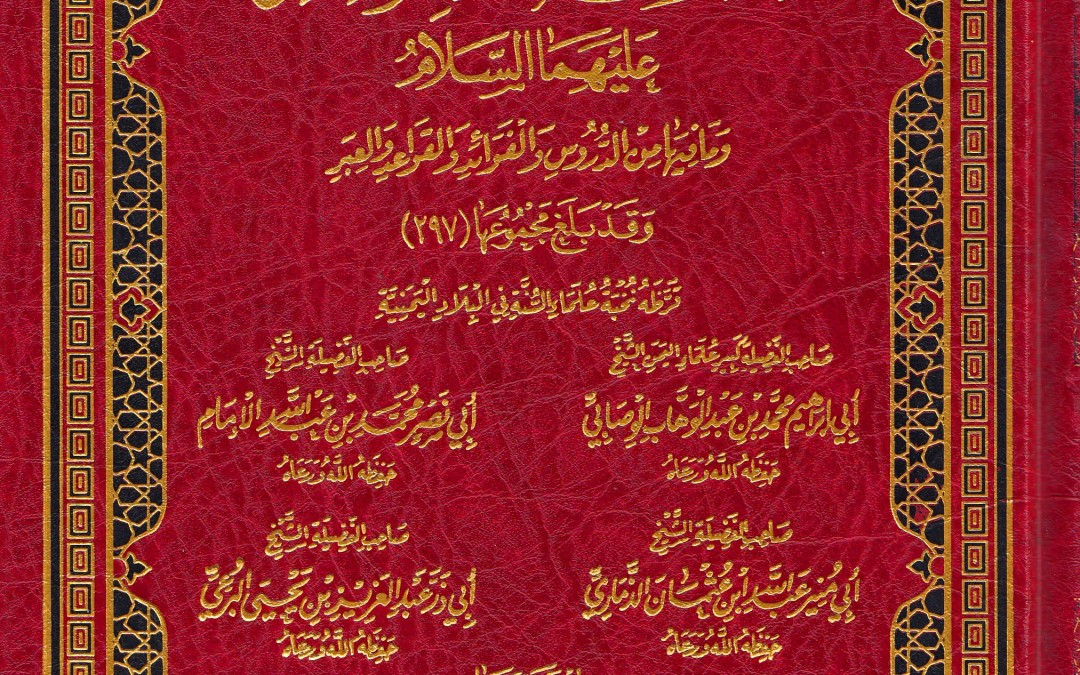 عَلَيْهِمَا السَّلَامُ
وَمَا فِيهَا مِنَ الدُّرُوسِ وَالْفَوَائِدِ وَالْقَوَاعِدِ وَالْعِبَرِ
وَقَدْ بَلَغَ مَجْمُوعُهَا (٢٩٧)
قَرَّظَهُ نُخْبَةُ عُلَمَاءِ السُّنَّةِ فِي الْبِلَادِ الْيَمَنِيَّةِ
صَاحِبُ الْفَضِيلَةِ كَبِيرُ عُلَمَاءِ الْيَمَنِ الشَّيْخُ
أَبِي إِبْرَاهِيمَ مُحَمَّدِ بْنِ عَبْدِ الْوَهَّابِ الْوَصَابِيِّ
حَفِظَهُ اللَّهُ وَرَعَاهُ
صَاحِبُ الْفَضِيلَةِ الشَّيْخُ
أَبِي نَصْرٍ مُحَمَّدِ بْنِ عَبْدِ اللَّهِ الْإِمَامِ
حَفِظَهُ اللَّهُ وَرَعَاهُ
صَاحِبُ الْفَضِيلَةِ الشَّيْخُ
أَبِي مُنِيرٍ عَبْدِ اللَّهِ ابْنِ عُثْمَانَ الذَّمَارِيِّ
حَفِظَهُ اللَّهُ وَرَعَاهُ
صَاحِبُ الْفَضِيلَةِ الشَّيْخُ
أَبِي ذَرٍّ عَبْدِ الْعَزِيزِ بْنِ يَحْيَى الْبُرَعِيِّ
حَفِظَهُ اللَّهُ وَرَعَاهُ